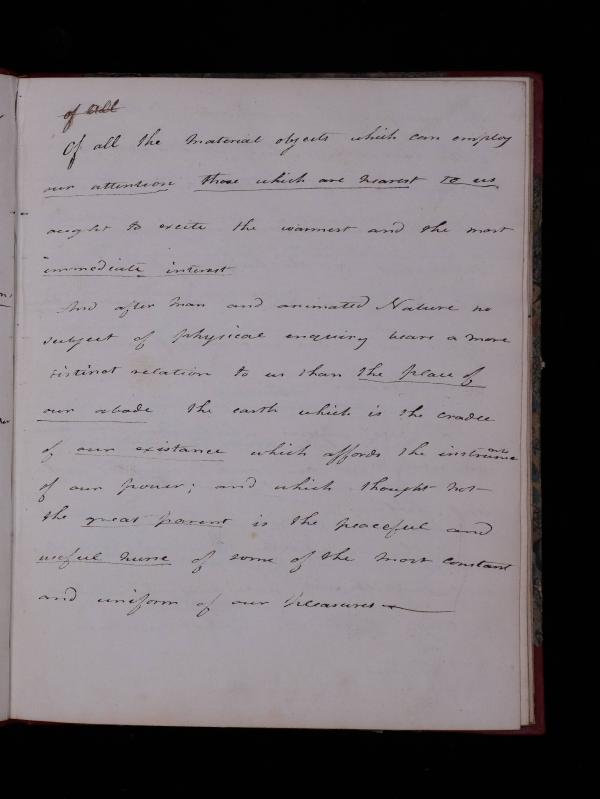 of all
Of all the material objects which can employ
our attention those which are nearest to us
ought to excite the warmest and the most
immediate interest
And after man and animated Nature no
subject of physical enquiry bears a more
distinct relation to us than the place of
our abode the earth which is the cradle
of our existance which affords the instruments
of our power; and which thought not
the great parent is the peaceful and
useful nurse of some of the most constant
and uniform of our pleasures